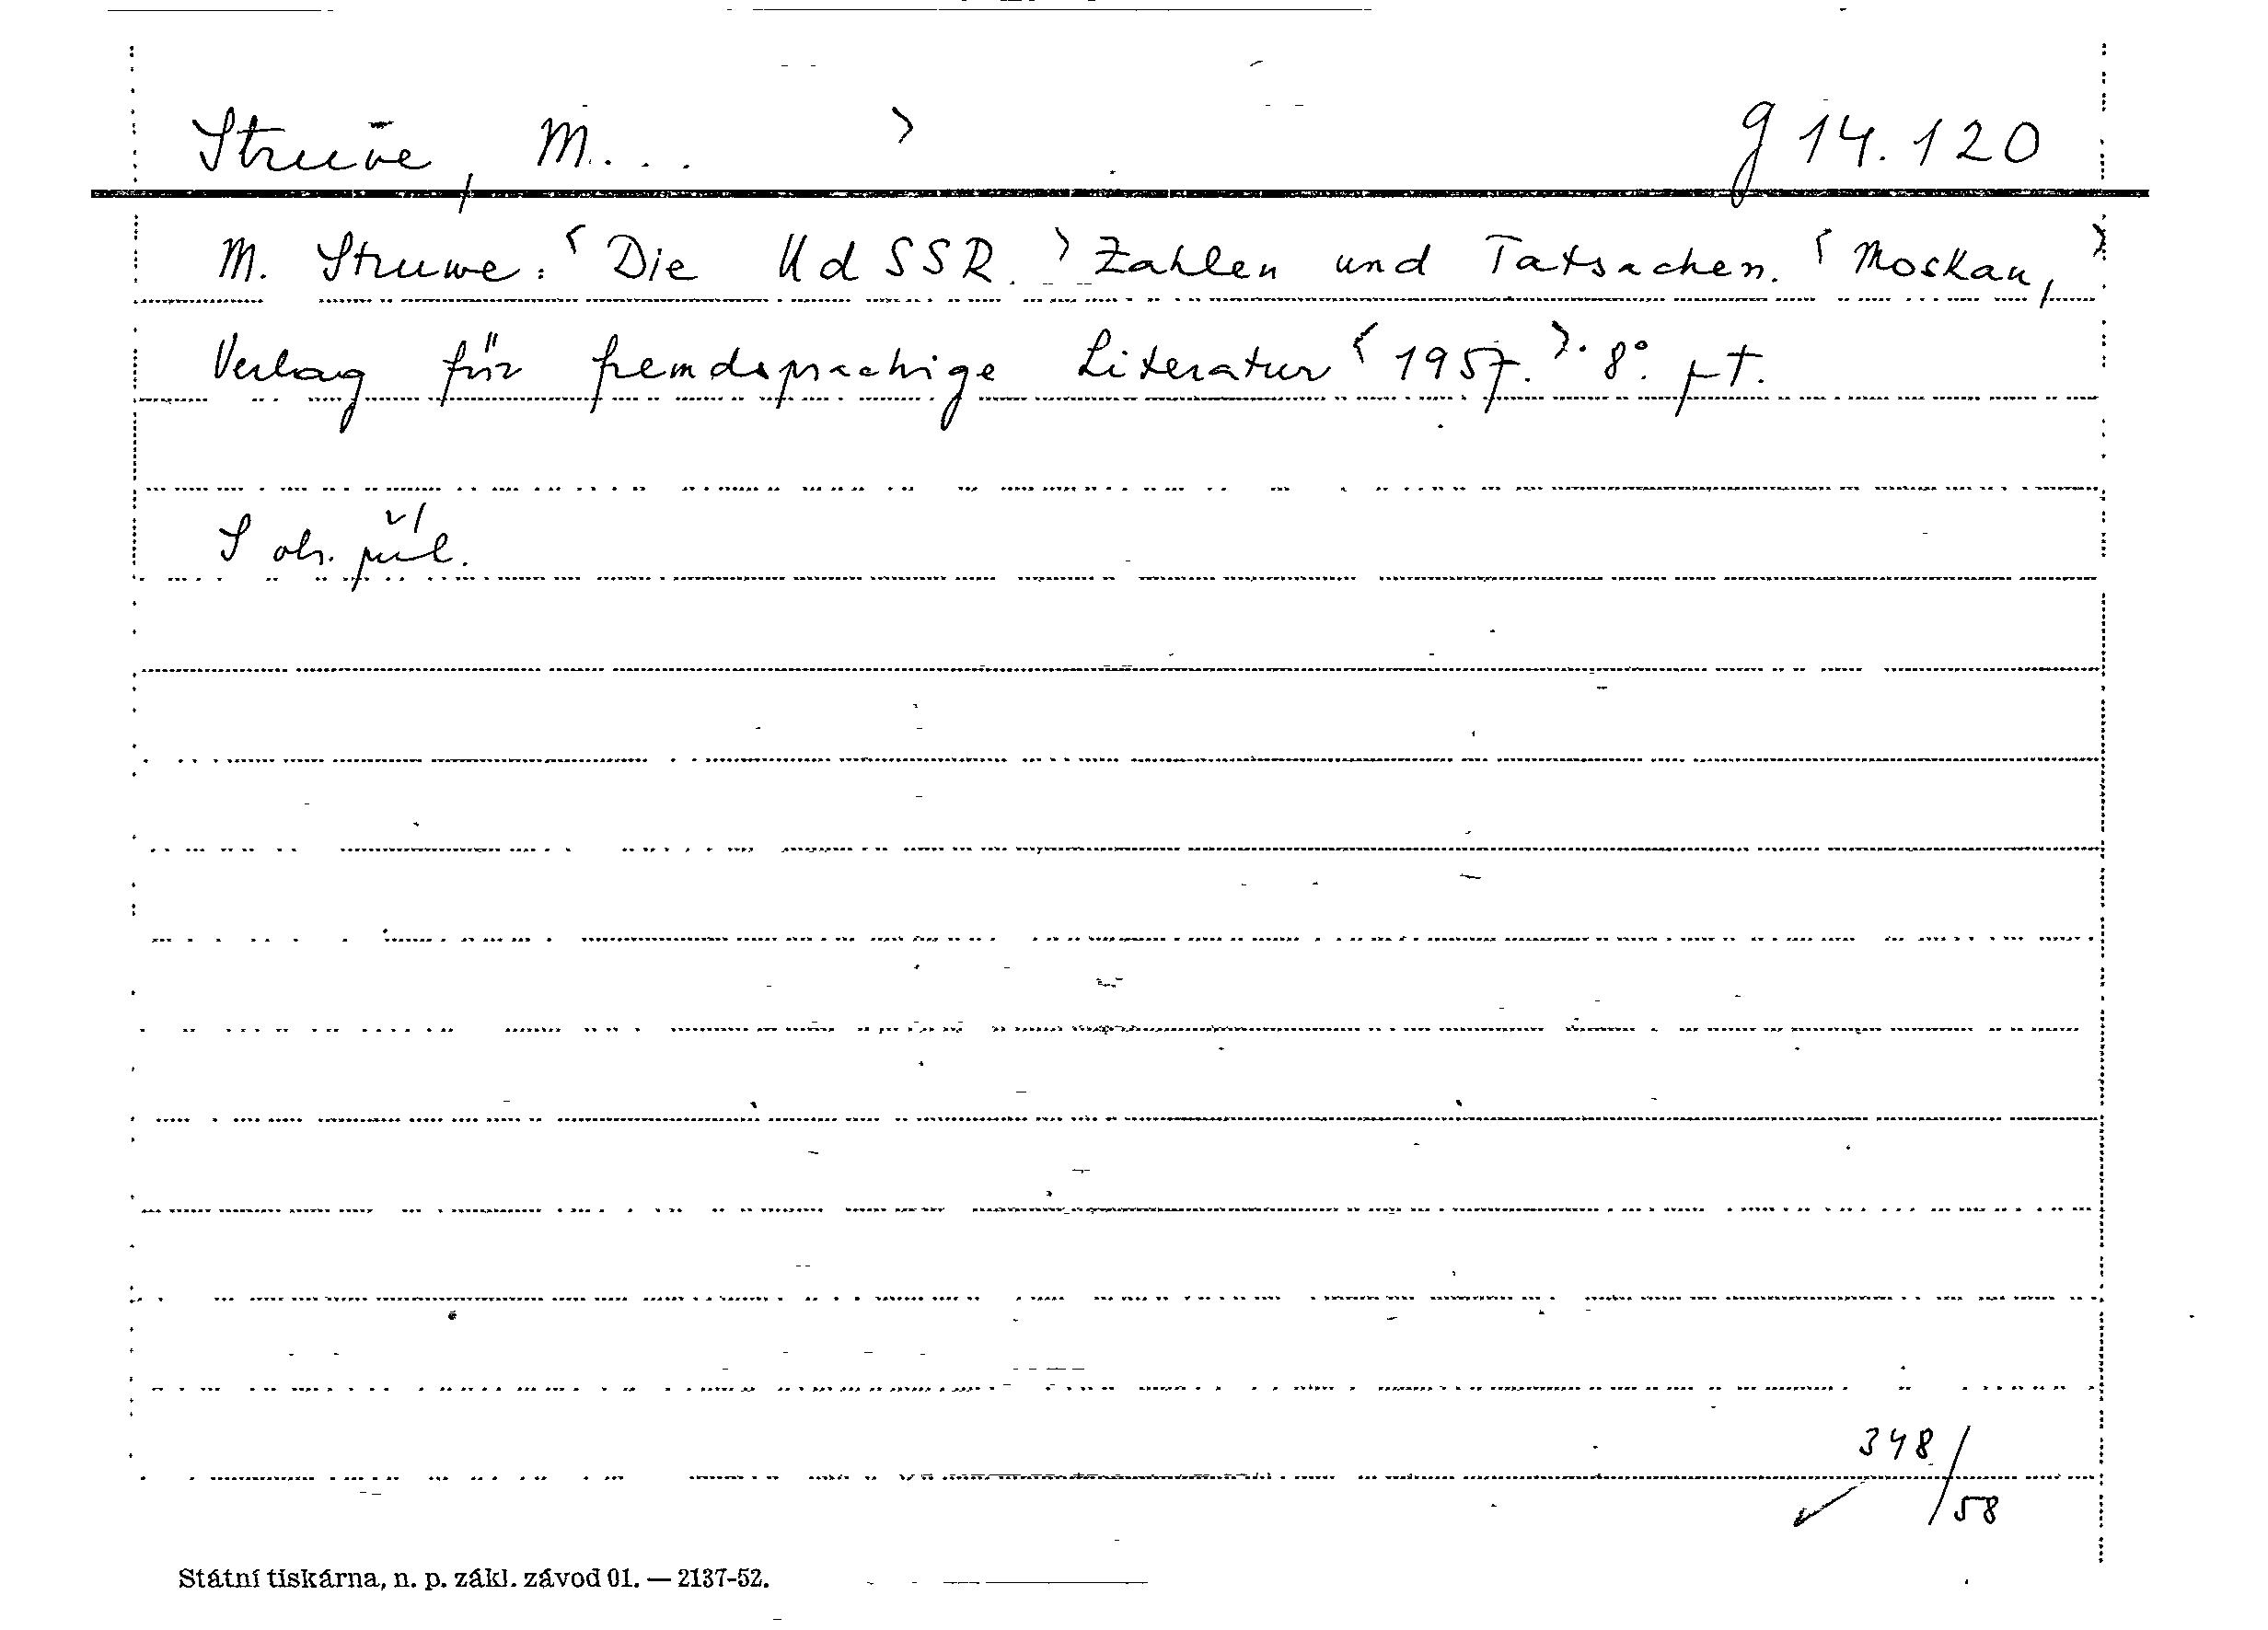 Struve, M... > g 14.120
M. Struwe: <Die UdSSR.> Zahlen und Tatsachen. <Moskau,>
Verlag für fremdsprachige Literatur <1957.>. 8°. pt.
S obr. příl.
348/58
Státní tiskárna, n. p. zákl. závod 01. — 2137-52.